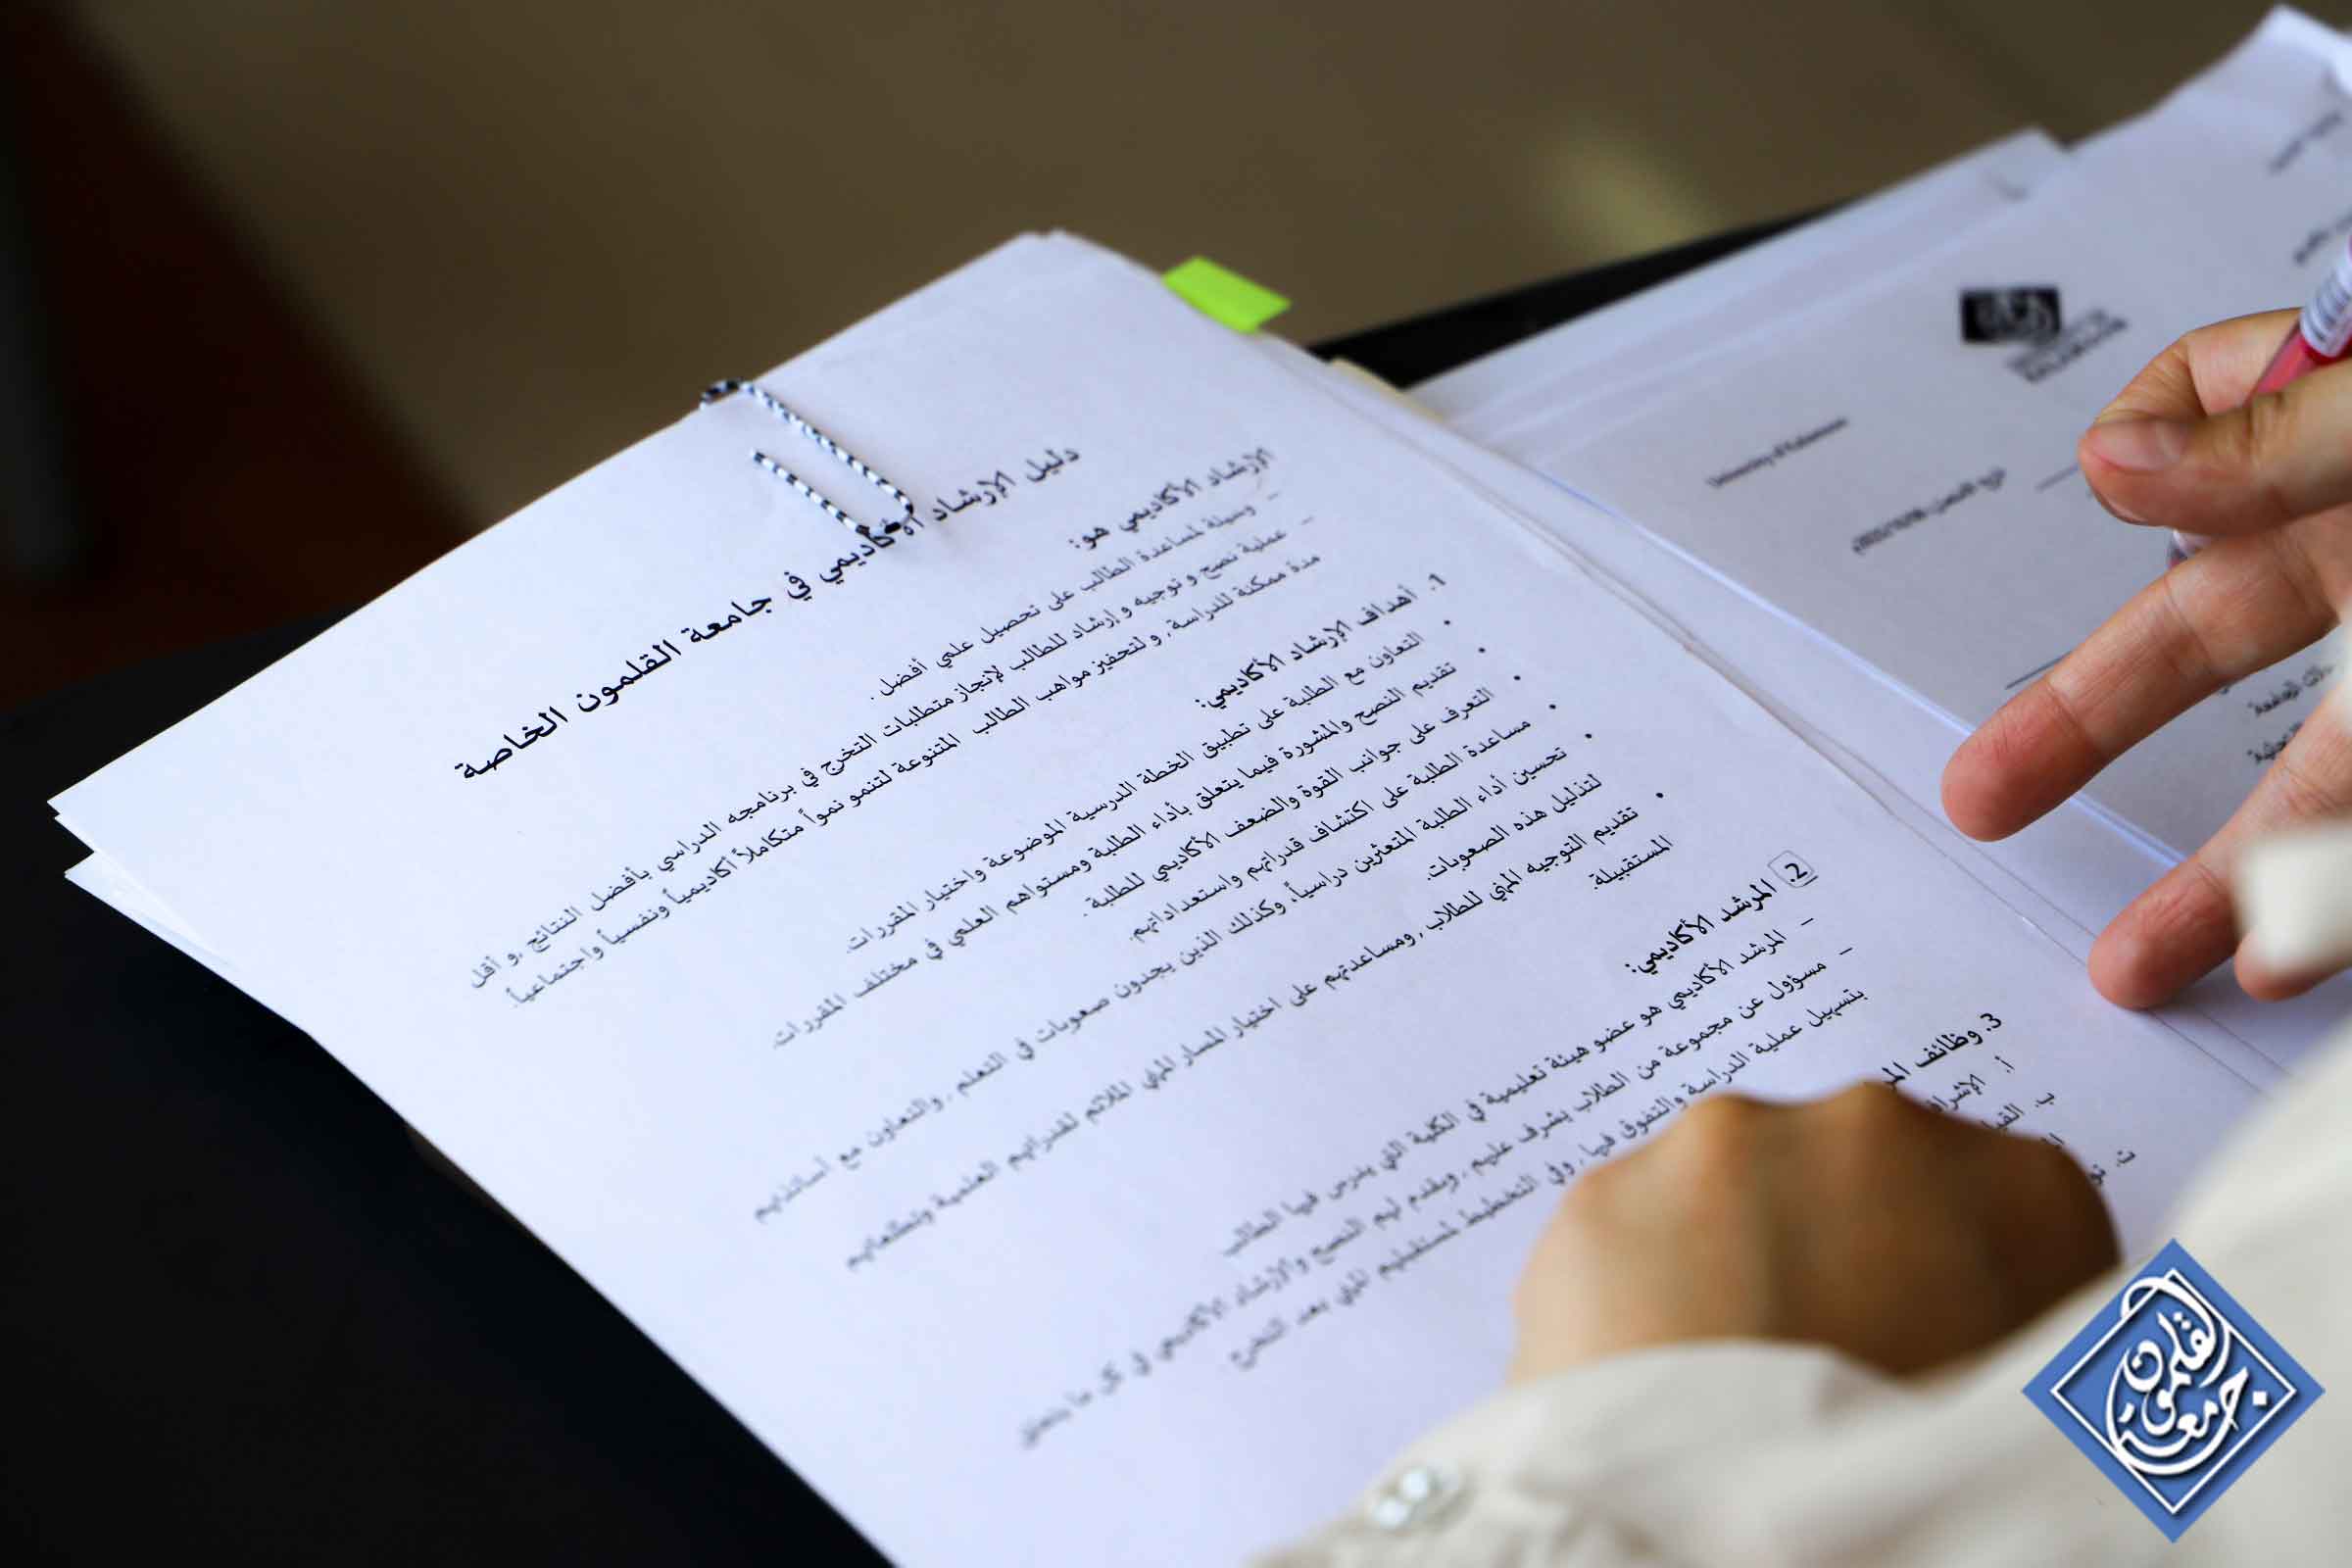 دليل الإرشاد الأكاديمي في جامعة القلمون الخاصة
الإرشاد الأكاديمي هو:
– وسيلة لمساعدة الطالب على تحصيل علمي أفضل .
– عملية نصح و توجيه و إرشاد للطالب لإنجاز متطلبات التخرج في برنامجه الدراسي بأفضل النتائج ,و أقل
مدة ممكنة للدراسة , و لتحفيز مواهب الطالب المتنوعة لتنمو نمواً متكاملاً أكاديمياً ونفسياً واجتماعياً.
1. أهداف الإرشاد الأكاديمي:
• التعاون مع الطلبة على تطبيق الخطة الدرسية الموضوعة واختيار المقررات.
• تقديم النصح والمشورة فيما يتعلق بأداء الطلبة ومستواهم العلمي في مختلف المقررات.
• التعرف على جوانب القوة والضعف الأكاديمي للطلبة .
• مساعدة الطلبة على اكتشاف قدراتهم واستعداداتهم.
• تحسين أداء الطلبة المتعثرين دراسياً، وكذلك الذين يجدون صعوبات في التعلم , والتعاون مع أساتذتهم
لتذليل هذه الصعوبات.
• تقديم التوجيه المهني للطلاب , ومساعدتهم على اختيار المسار المهني الملائم لقدراتهم العلمية وتطلعاتهم
المستقبيلة.
2. المرشد الأكاديمي:
– المرشد الأكاديمي هو عضو هيئة تعليمية في الكلية التي يدرس فيها الطالب
– مسؤول عن مجموعة من الطلاب يشرف عليهم , ويقدم لهم النصح والإرشاد الأكاديمي في كل ما يتعلق
بتسهيل عملية الدراسة والتفوق فيها , وفي التخطيط لمستقبلهم المهني بعد التخرج
3. وظائف
أ. الإشراف
ب.
ت.
University of Kalamoon
جامعة القلمون